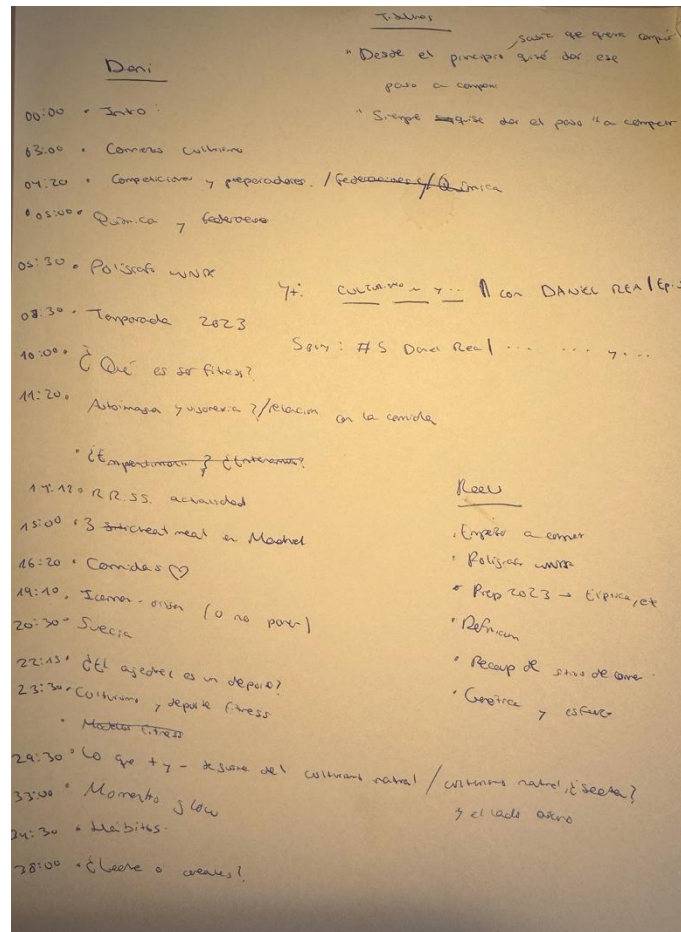 Dani
00:00 • Intro
03:00 • Comienzo culturismo
04:20 • Competiciones y preparadores. / Federaciones y / Química
05:00 • Química y federaciones
05:30 • Polígrafo WNBF
08:30 • Temporada 2023
10:00 • ¿Qué es ser fitness?
11:20 • Autoimagen y vigorexia? / relación con la comida
• ¿Empezamos? ¿Entrenamos?
14:12 • RR.SS. actualidad
15:00 • 3 cheat meal en Madrid
16:20 • Comidas ♡
19:10 • (o no poner)
20:30 • Suecia
22:15 • ¿El ajedrez es un deporte?
23:30 • Culturismo y deporte fitness
• fitness
29:30 • Lo que + y - te gusta del culturismo natural / culturismo natural, ¿secta?
y el lado
33:00 • Momento glow
34:30 • Hábitos.
38:00 • ¿Leche o cereales?
Títulos
sabía que quería competir
" Desde el principio quise dar ese
paso a competir
" Siempre quise dar el paso " a competir
Yt: CULTURISMO y ... con DANIEL REAL
#5 Daniel Real ... ... y ...
Reels
• Empezó a comer
• Polígrafo WNBF
• Prep 2023 →
• Definición
• Recap de sitios de comer
• Genética y esfuerzo